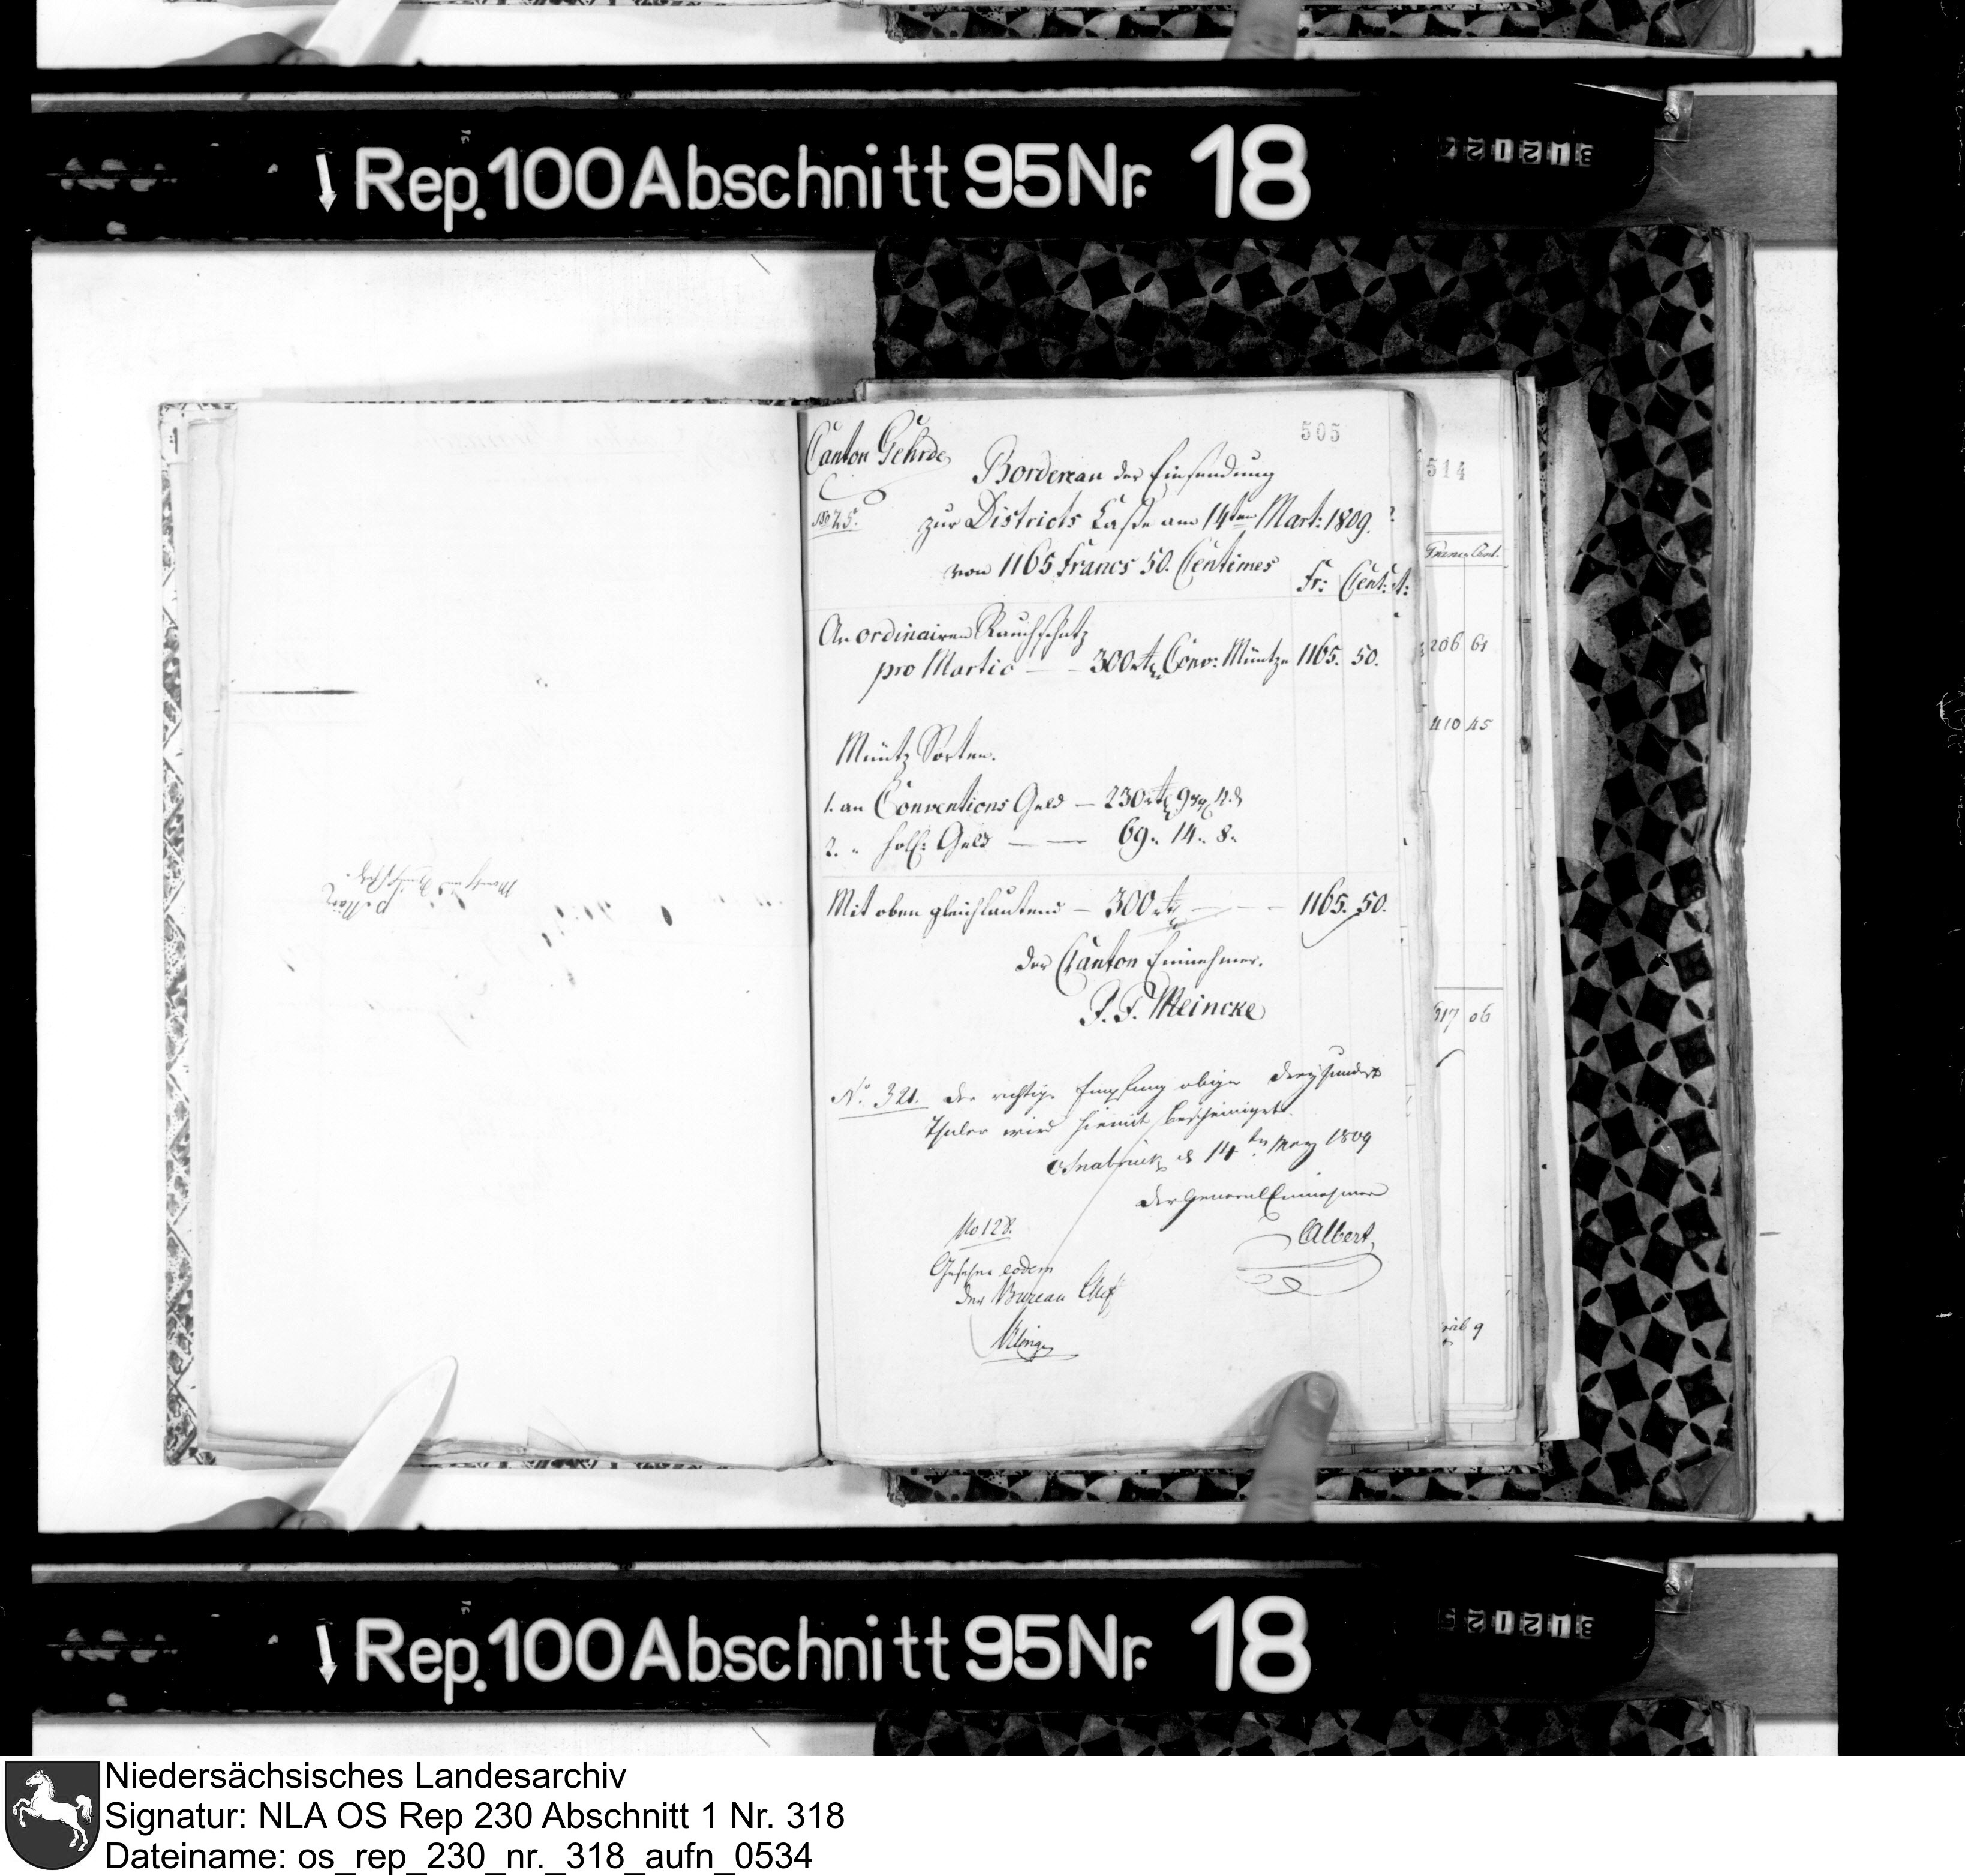 Rep. 100 Abschnitt 95 Nr. 18
505
Canton Gehrde
Bordereau der Einsendung
No 25.
zur Districts Casse am 14ten Mart: 1809.
von 1165 Francs 50. Centimes
Fr: Cent:
An ordinairen Rauchschatz
pro Martio — 300 rt Conv: Müntze 1165. 50.
Müntz Sorten.
1. an Conventions Geld — 230 rt 9 ggr 4 d
2. " holl: Geld — 69. 14. 8.
Mit oben gleichlautend — 300 rt — 1165. 50.
der Canton Einnehmer.
Meincke
No. 321. Der richtige Empfang obiger dreyhundert
Thaler wird hiemit bescheiniget.
Osnabrück d 14ten 1809
der General Einnehmer
Albert
No 128.
Gesehen eodem
der Bureau Chef
514
Francs Cent.
206 61
410 45
617 06
Rep. 100 Abschnitt 95 Nr. 18
Niedersächsisches Landesarchiv
Signatur: NLA OS Rep 230 Abschnitt 1 Nr. 318
Dateiname: os_rep_230_nr._318_aufn_0534